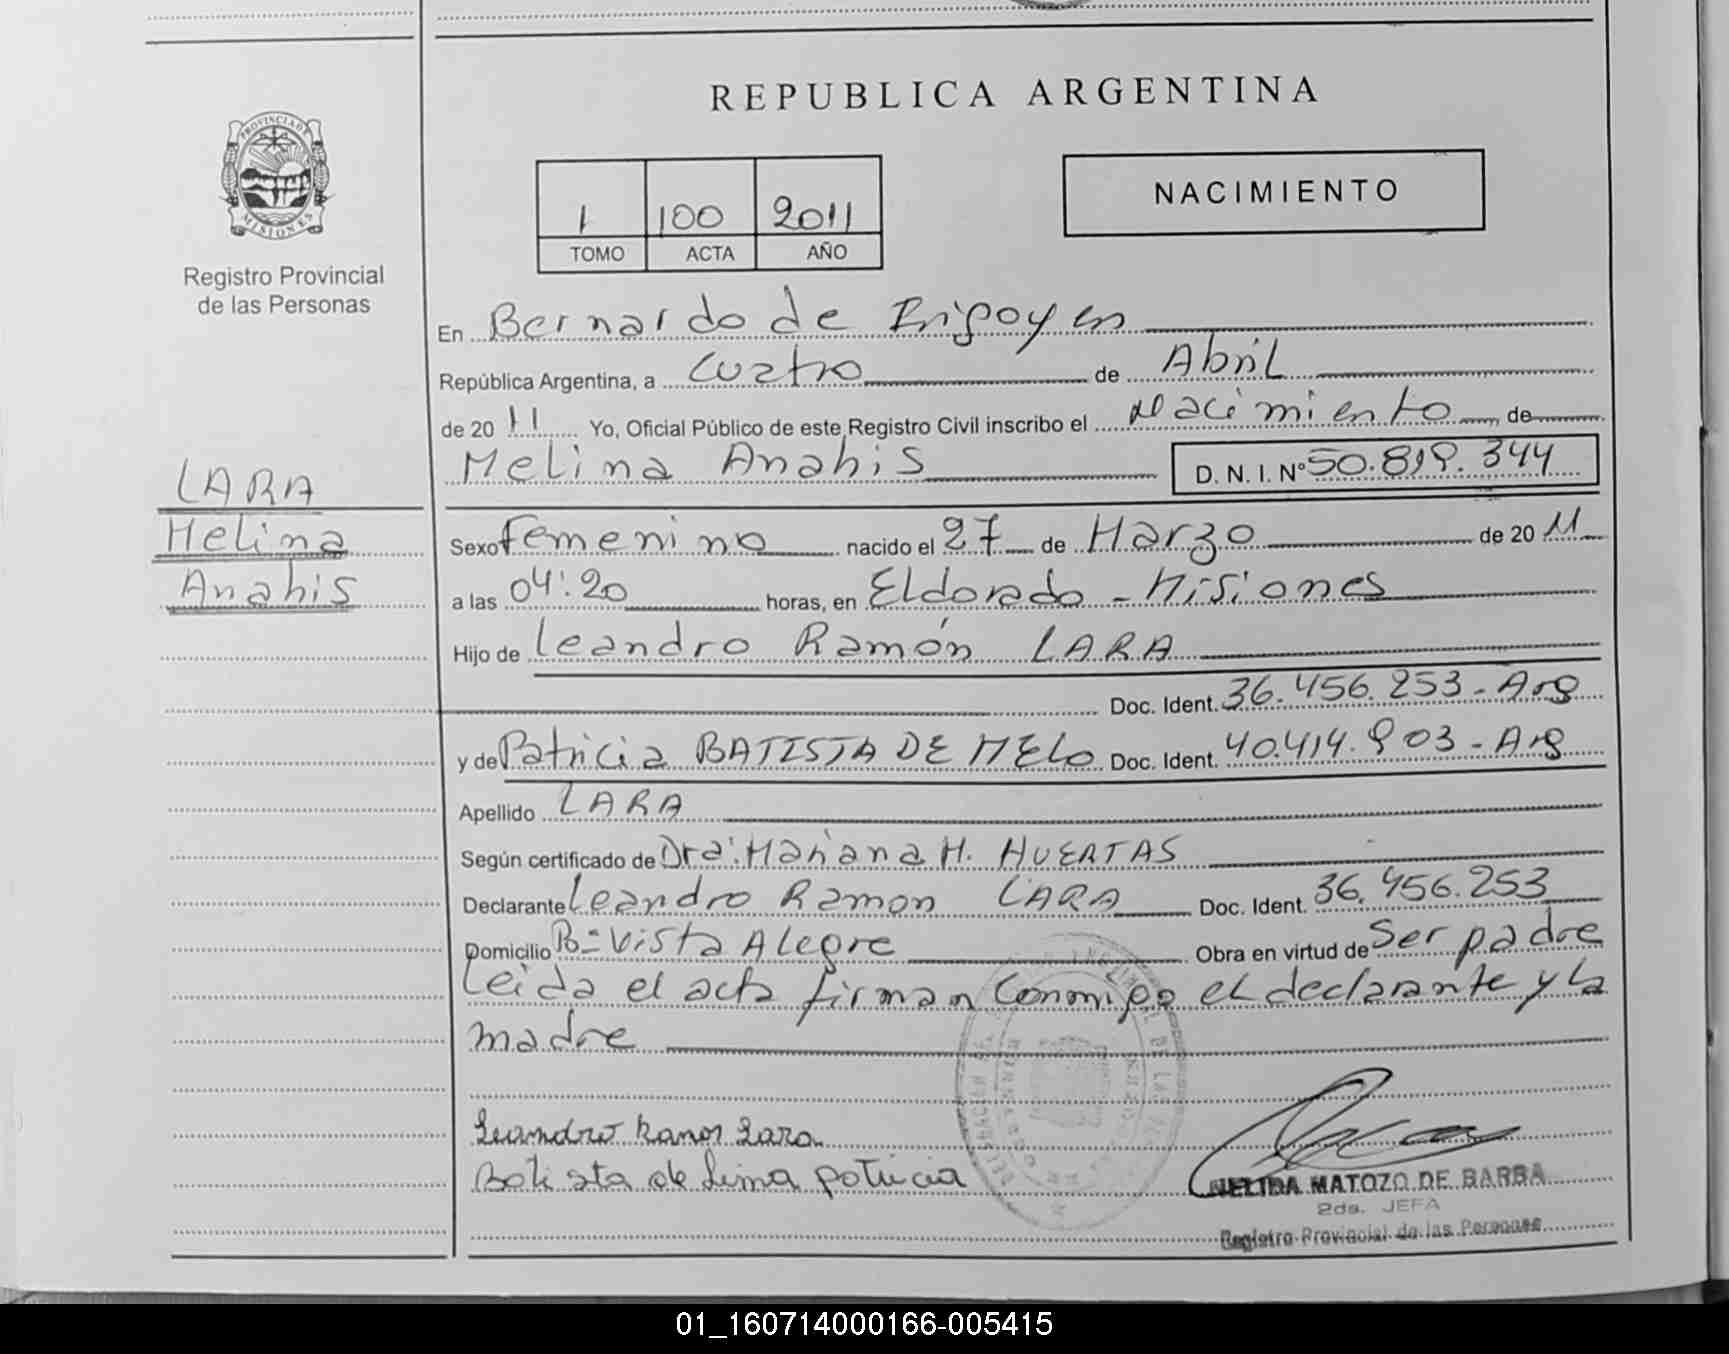 REPUBLICA ARGENTINA
PROVINCIA DE
MISIONES
Registro Provincial
de las Personas
1 100 2011
TOMO ACTA AÑO
NACIMIENTO
En Bernardo de Irigoyen
República Argentina, a Cuatro de Abril
de 2011 Yo, Oficial Público de este Registro Civil inscribo el Nacimiento, de
Melina Anahis D. N. I. Nº 50.819.344
LARA
Melina
Anahis
Sexo Femenino nacido el 27 de Marzo de 2011
a las 04:20 horas, en Eldorado - Misiones
Hijo de Leandro Ramón LARA
Doc. Ident. 36.456.253 - Arg
y de Patricia BATISTA DE MELO Doc. Ident. 40.414.903 - Arg
Apellido LARA
Según certificado de Dra. Mariana H. HUERTAS
Declarante Leandro Ramon LARA Doc. Ident. 36.456.253
Domicilio Bº Vista Alegre Obra en virtud de Ser padre
Leida el acta firman conmigo el declarante y la
madre
Leandro Ramon Lara
Batista de Lima patricia
NELIDA MATOZO DE BARBA
2da. JEFA
Registro Provincial de las Personas
01_160714000166-005415